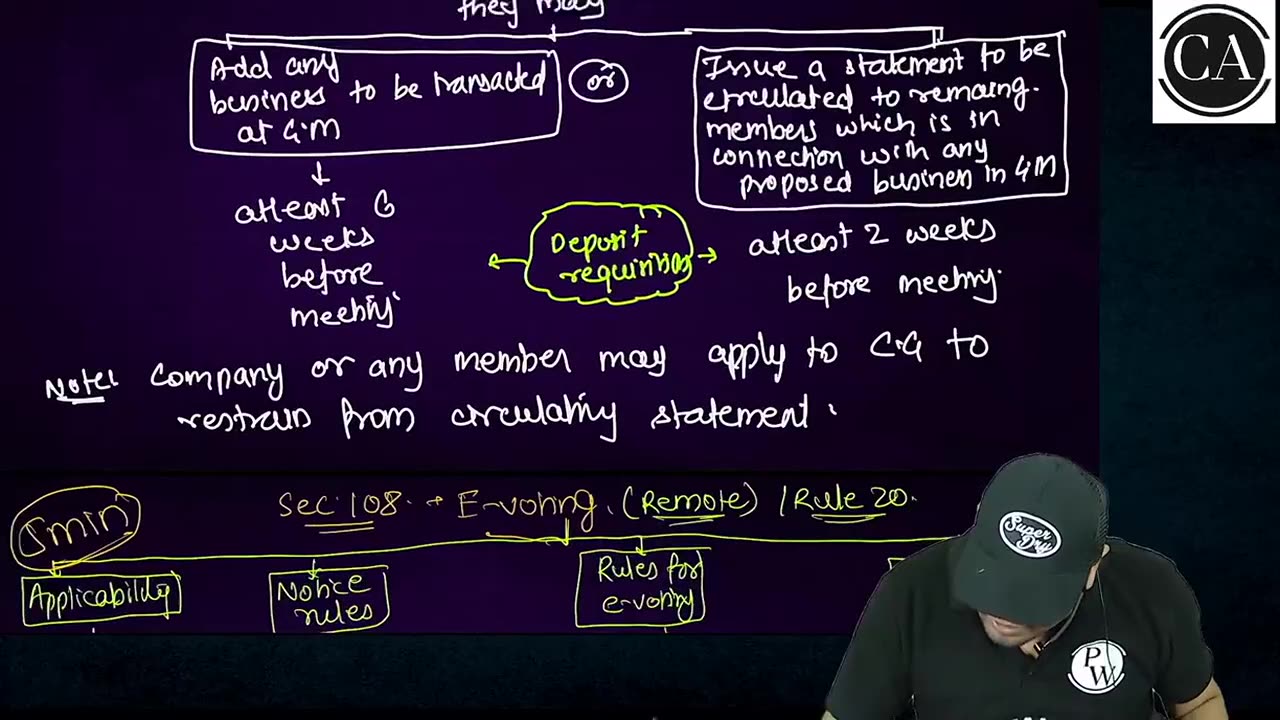 they may
Add any
business to be transacted
at G.M
or
Issue a statement to be
circulated to remaing.
members which is in
connection with any
proposed business in G.M
atleast 6
weeks
before
meeting
Deposit
requisition
atleast 2 weeks
before meeting.
Note: Company or any member may apply to C.G to
restrain from circulating statement.
5min
Sec. 108. → E-voting. (Remote) / Rule 20.
Applicability
Notice
rules
Rules for
e-voting
CA
Super
Dry
P
W